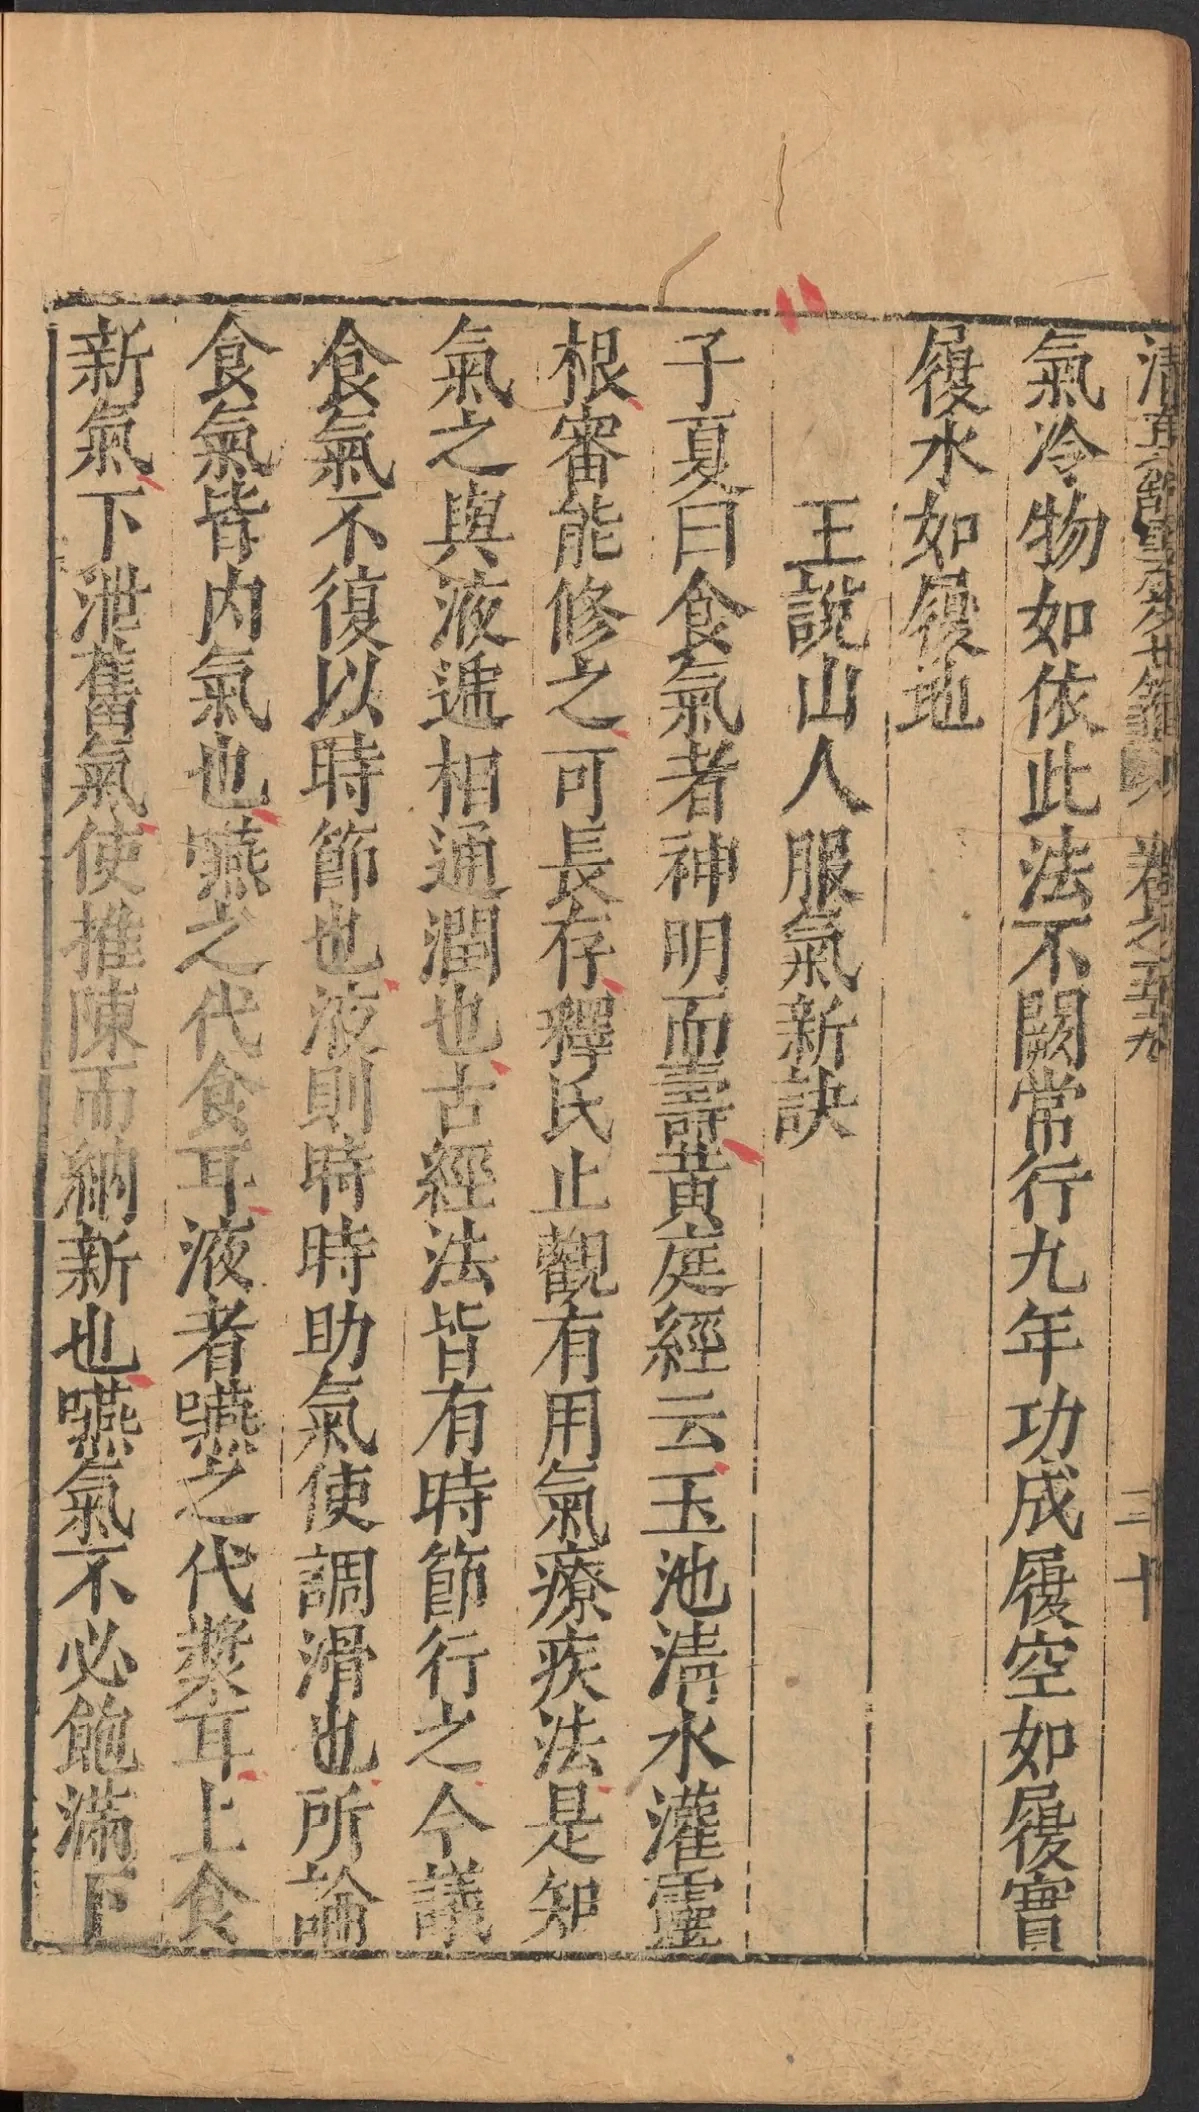 卷之五十九
三十
氣冷物如依此法不闕常行九年功成履空如履實
履水如履地
王說山人服氣新訣
子夏曰食氣者神明而壽黃庭經云玉池清水灌靈
根審能修之可長存釋氏止觀有用氣療疾法是知
氣之與液遞相通潤也古經法皆有時節行之今議
食氣不復以時節也液則時時助氣使調滑也所論
食氣皆內氣也嚥之代食耳液者嚥之代漿耳上食
新氣下泄舊氣使推陳而納新也嚥氣不必飽滿下